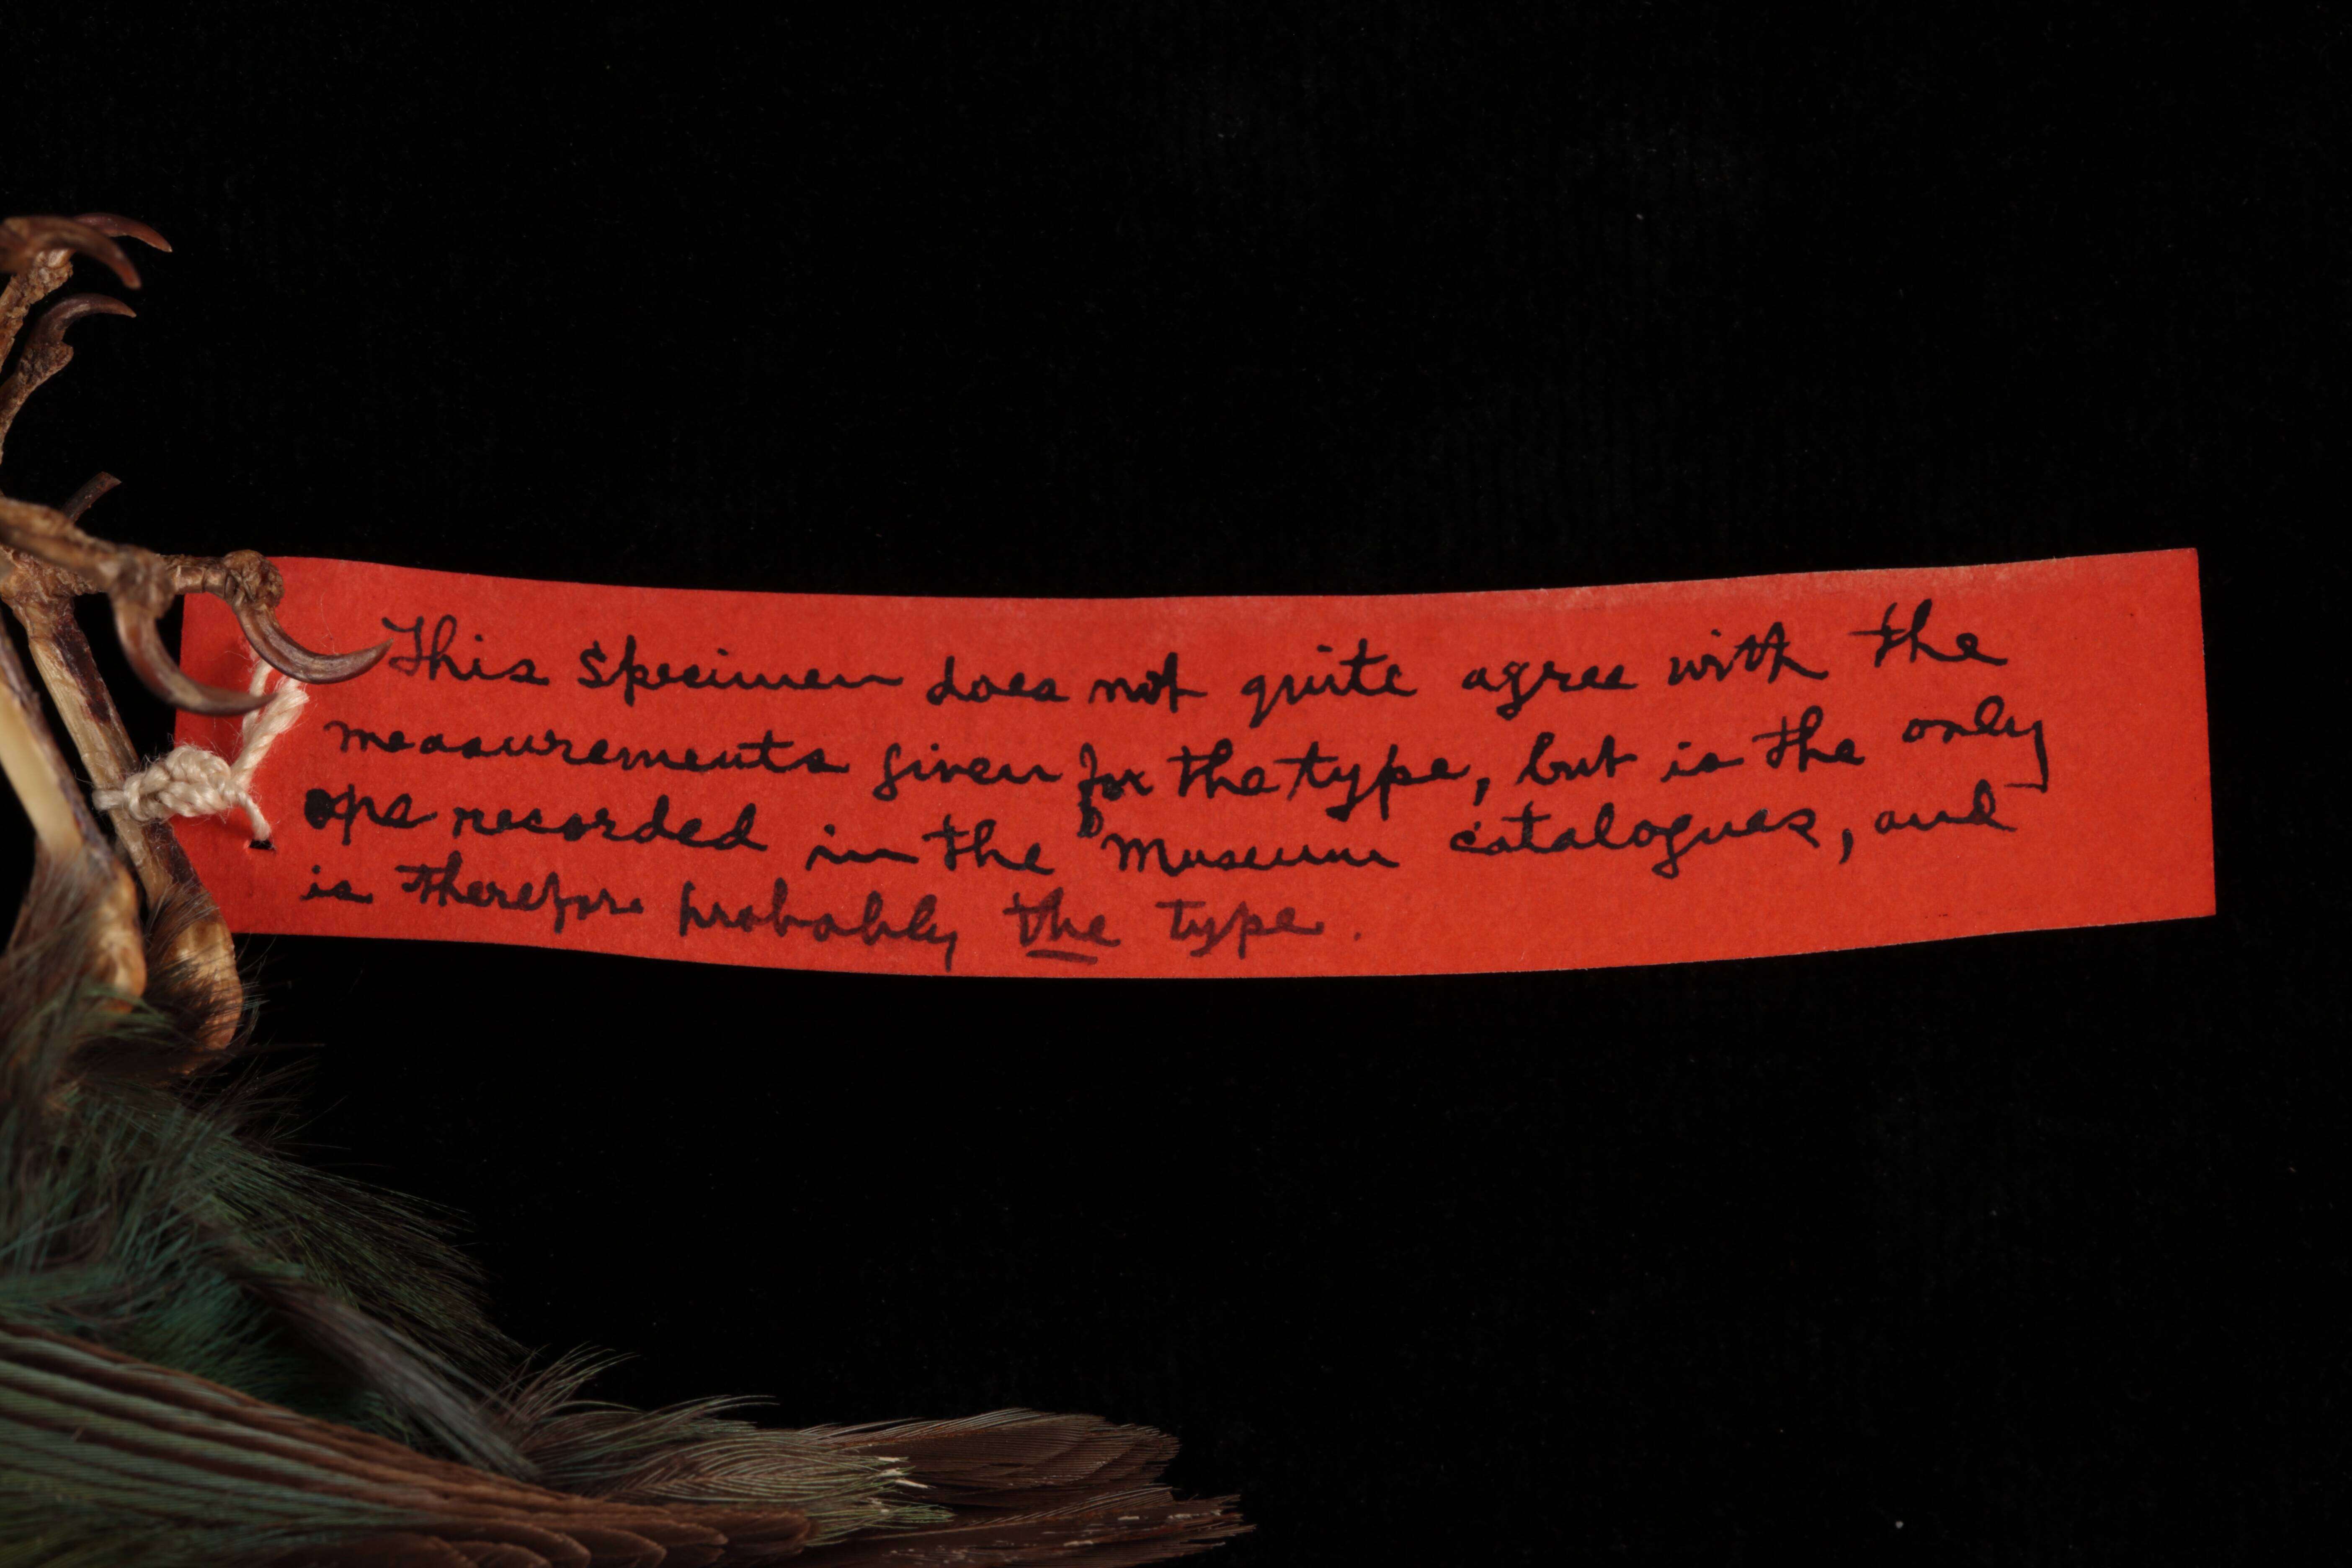 This specimen does not quite agree with the
measurements given for the type, but is the only
one recorded in the Museum catalogues, and
is therefore probably the type.